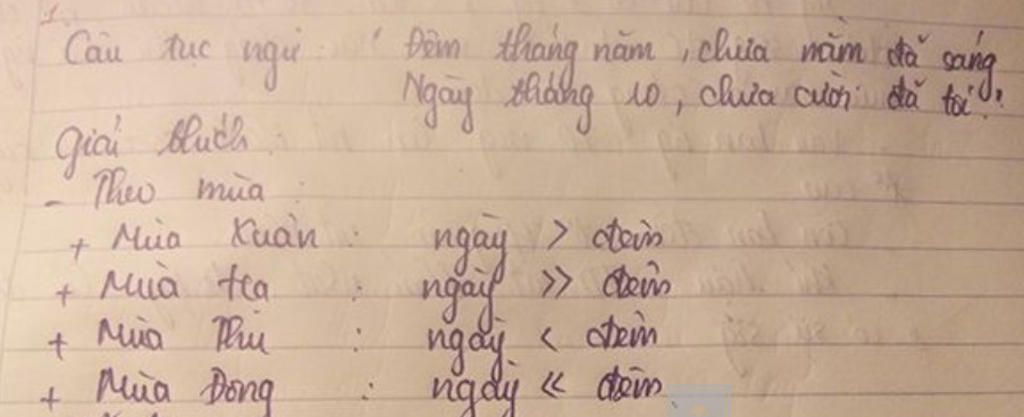 1.
Câu tục ngữ : " Đêm tháng năm, chưa nằm đã sáng
Ngày tháng 10, chưa cười đã tối".
Giải thích :
- Theo mùa :
+ Mùa Xuân : ngày > đêm
+ Mùa Hạ : ngày >> đêm
+ Mùa Thu : ngày < đêm
+ Mùa Đông : ngày << đêm